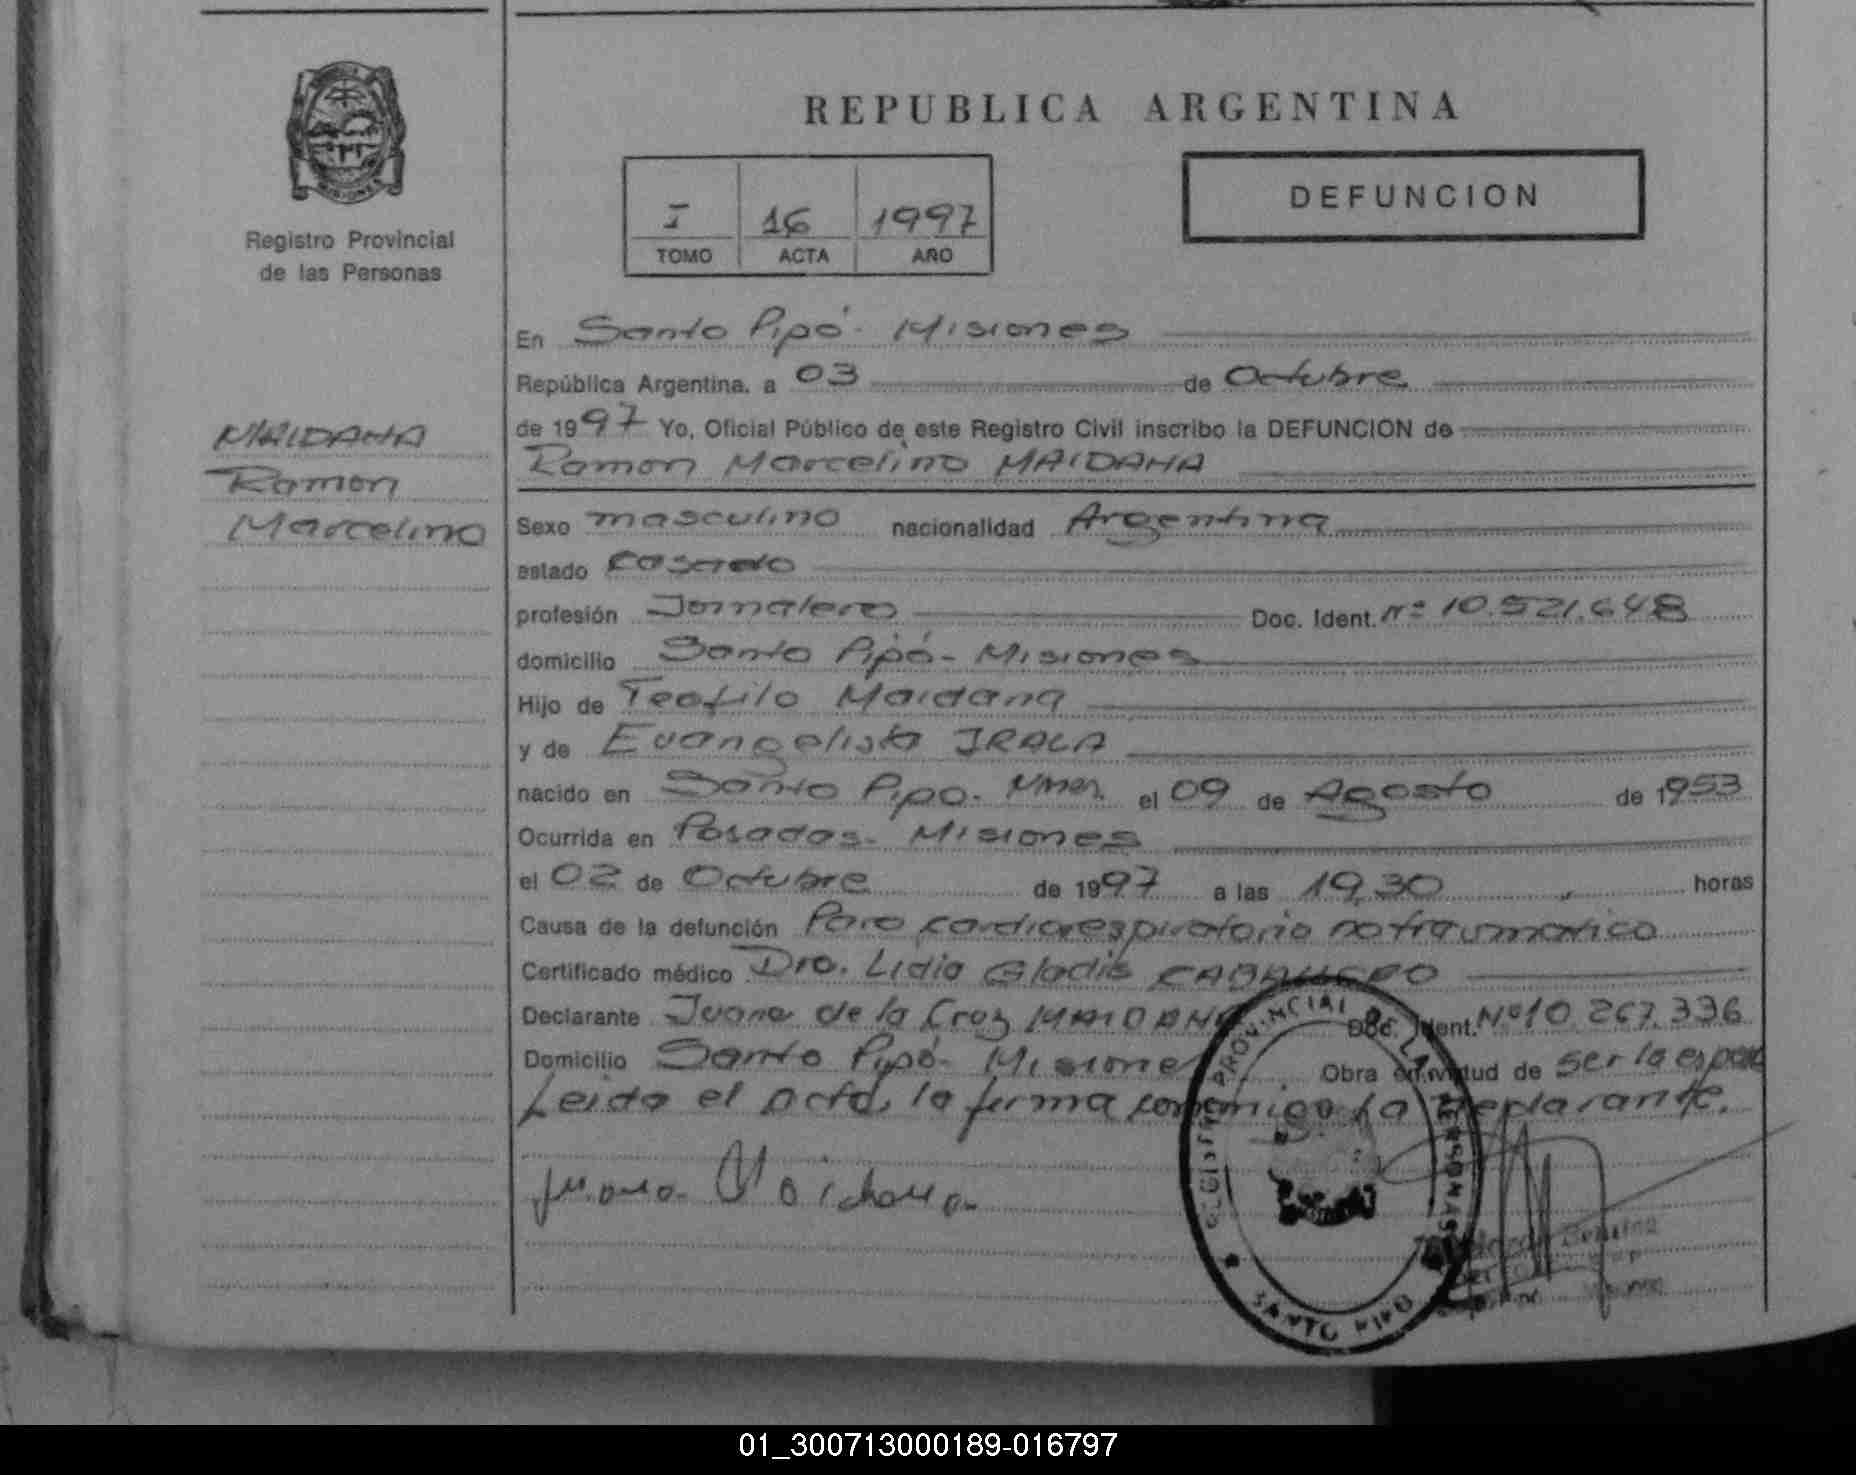 REPUBLICA ARGENTINA
DEFUNCION
I 16 1997
TOMO ACTA AÑO
MISIONES
Registro Provincial
de las Personas
MAIDANA
Ramon
Marcelino
En Santo Pipó - Misiones
República Argentina, a 03 de Octubre
de 1997 Yo, Oficial Público de este Registro Civil inscribo la DEFUNCION de
Ramon Marcelino MAIDANA
Sexo masculino nacionalidad Argentina
estado casado
profesión Jornalero Doc. Ident. Nº 10.521.648
domicilio Santo Pipó - Misiones
Hijo de Teofilo Maidana
y de Evangelista IRALA
nacido en Santo Pipo - Mnes. el 09 de Agosto de 1953
Ocurrida en Posadas - Misiones
el 02 de Octubre de 1997 a las 19,30 horas
Causa de la defunción Paro cardiorespiratorio no traumatico
Certificado médico Dra. Lidia Gladis CABALLERO
Declarante Juana de la Cruz MAIDANA Doc. Ident. Nº 10.267.336
Domicilio Santo Pipó - Misiones Obra en virtud de ser la esposa
Leida el acta, la firma conmigo la declarante.
Juana Maidana
REGISTRO PROVINCIAL DE LAS PERSONAS
SANTO PIPO
01_300713000189-016797